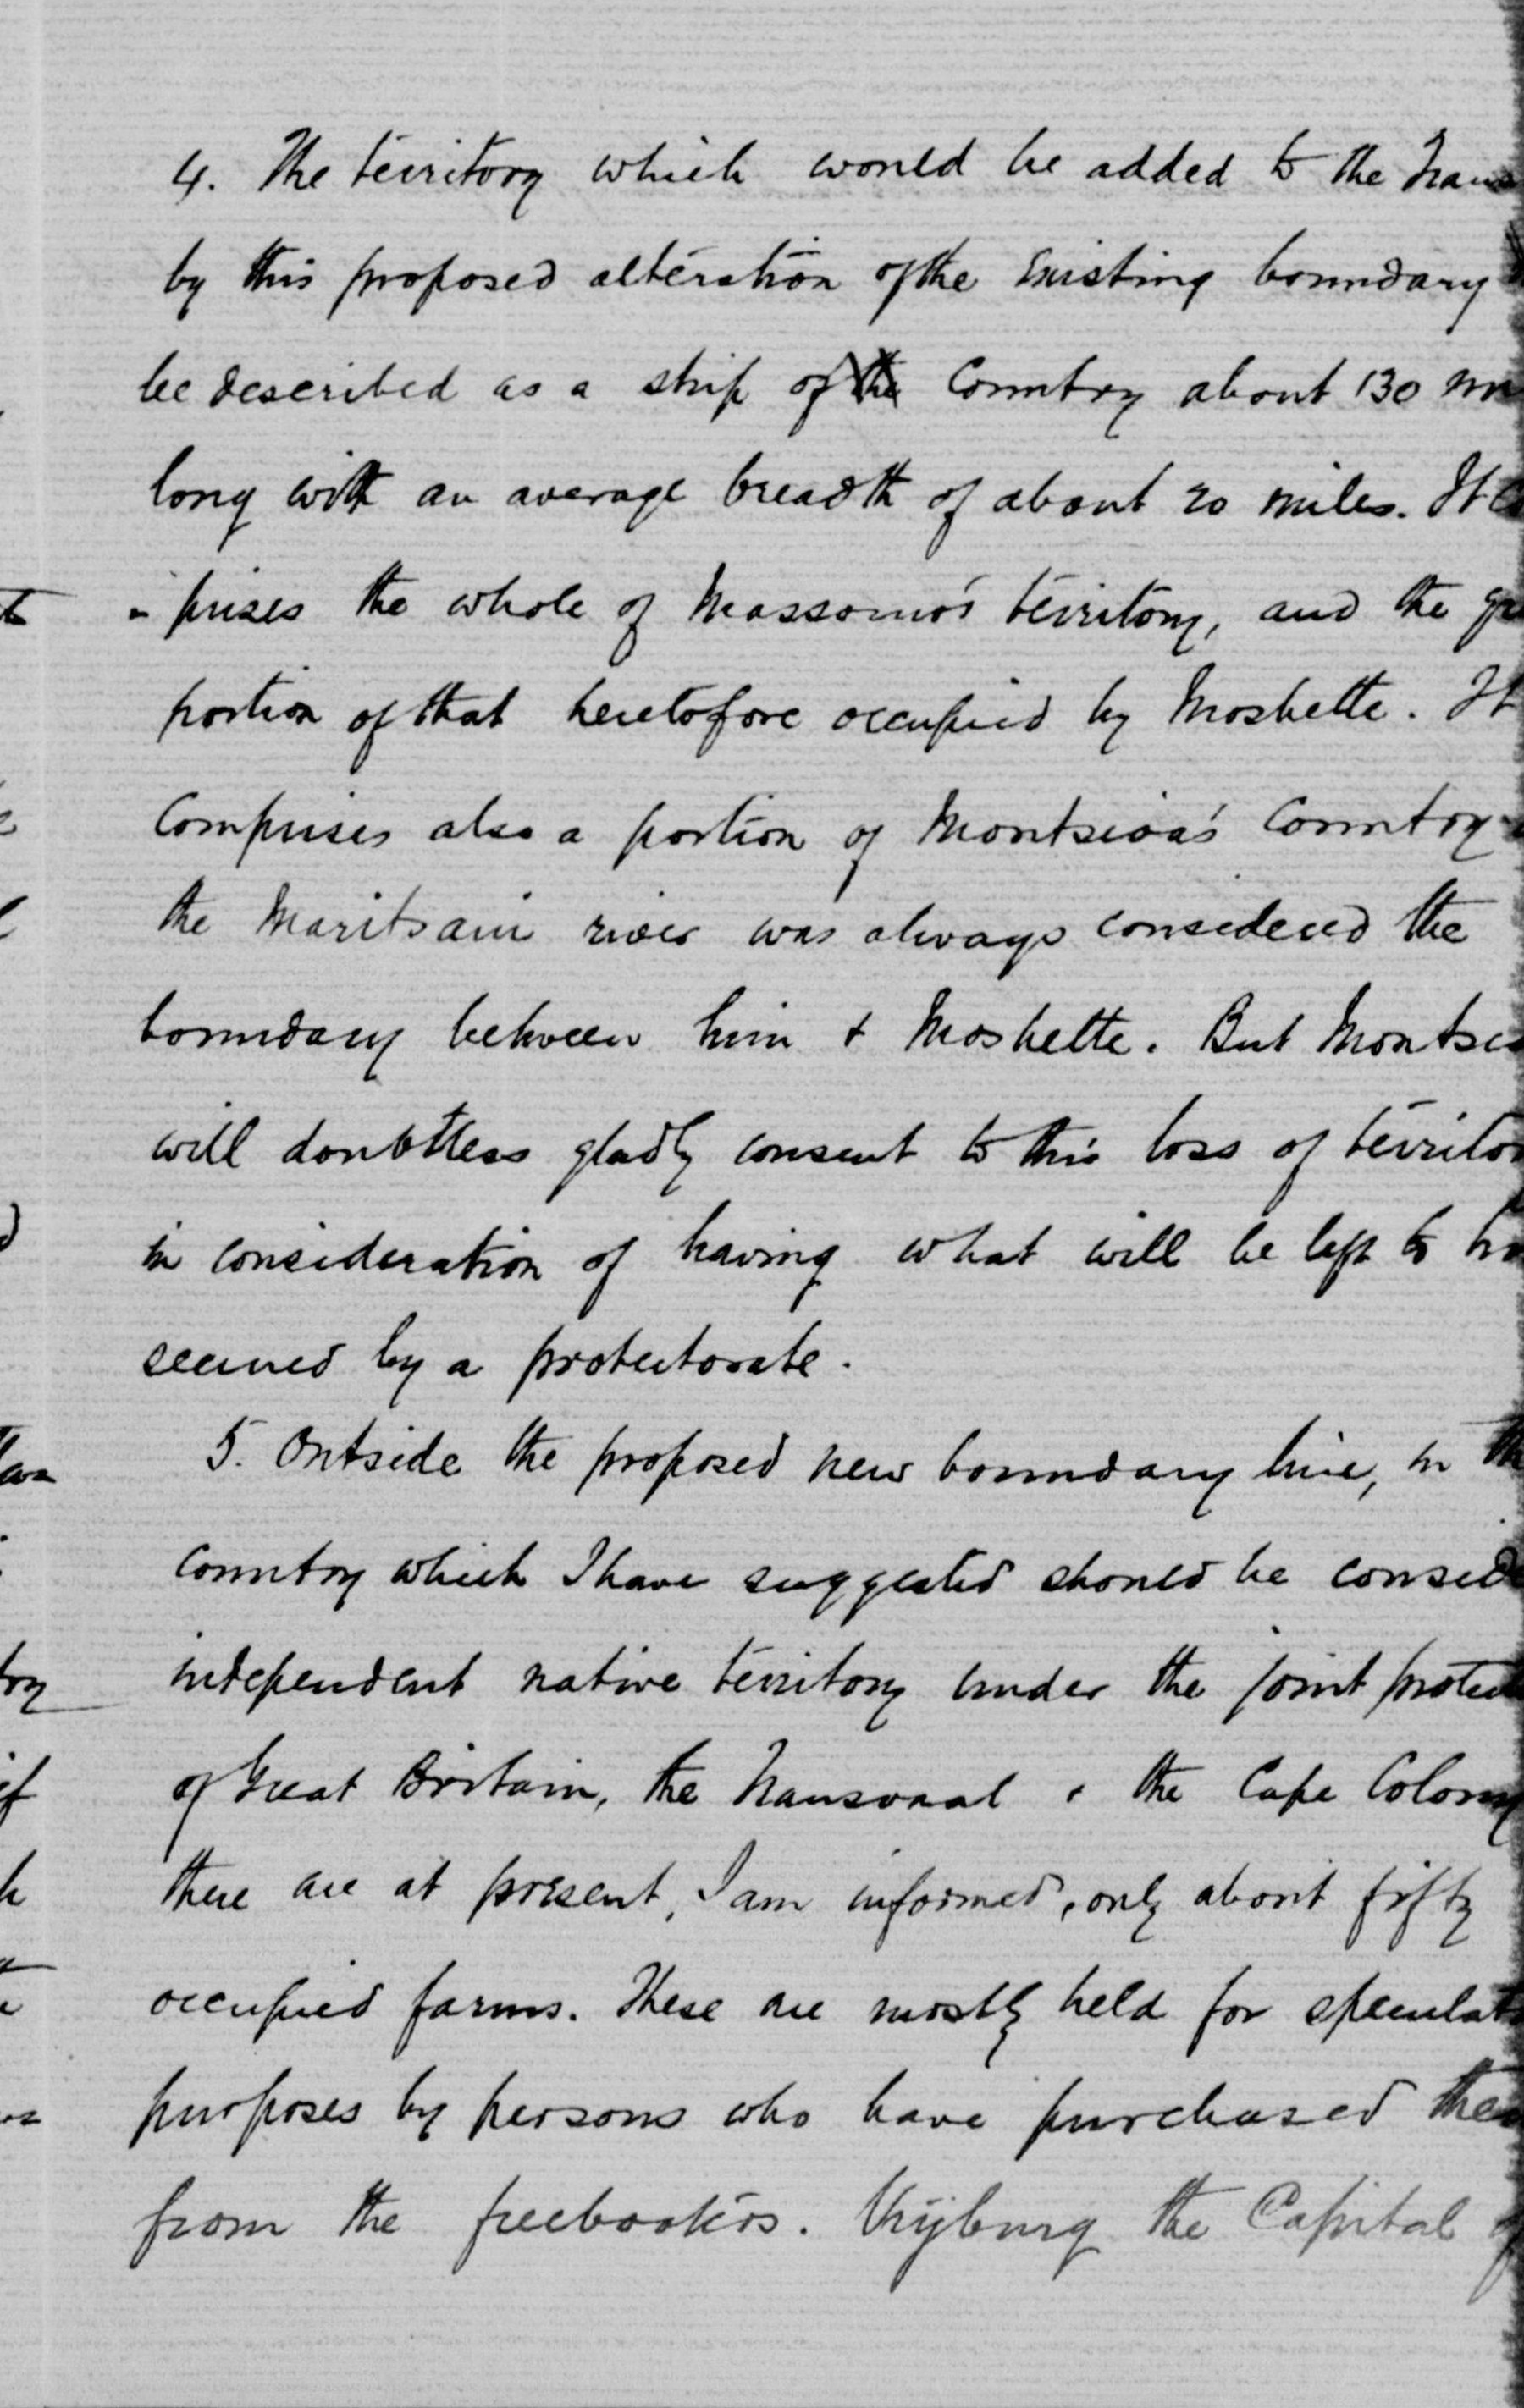 4. The territory which would be added to the Trans
by this proposed alteration of the Existing boundary
be described as a strip of the Country about 130 mi
long with an average breadth of about 20 miles. It c
- prises the whole of Massouw's territory, and the gre
portion of that heretofore occupied by Moshette. It
Comprises also a portion of Montsioa's Country
the Maritsani river was always considered the
boundary between him & Moshette. But Montsio
will doubtless gladly consent to this loss of territor
in consideration of having what will be left to hi
secured by a protectorate.
5. Outside the proposed new boundary line, in th
Country which I have suggested should be consid
independent native territory under the joint protect
of Great Britain, the Transvaal & the Cape Colony
there are at present, I am informed, only about fifty
occupied farms. These are mostly held for speculat
purposes by persons who have purchased the
from the freebooters. Vrijburg the Capital of